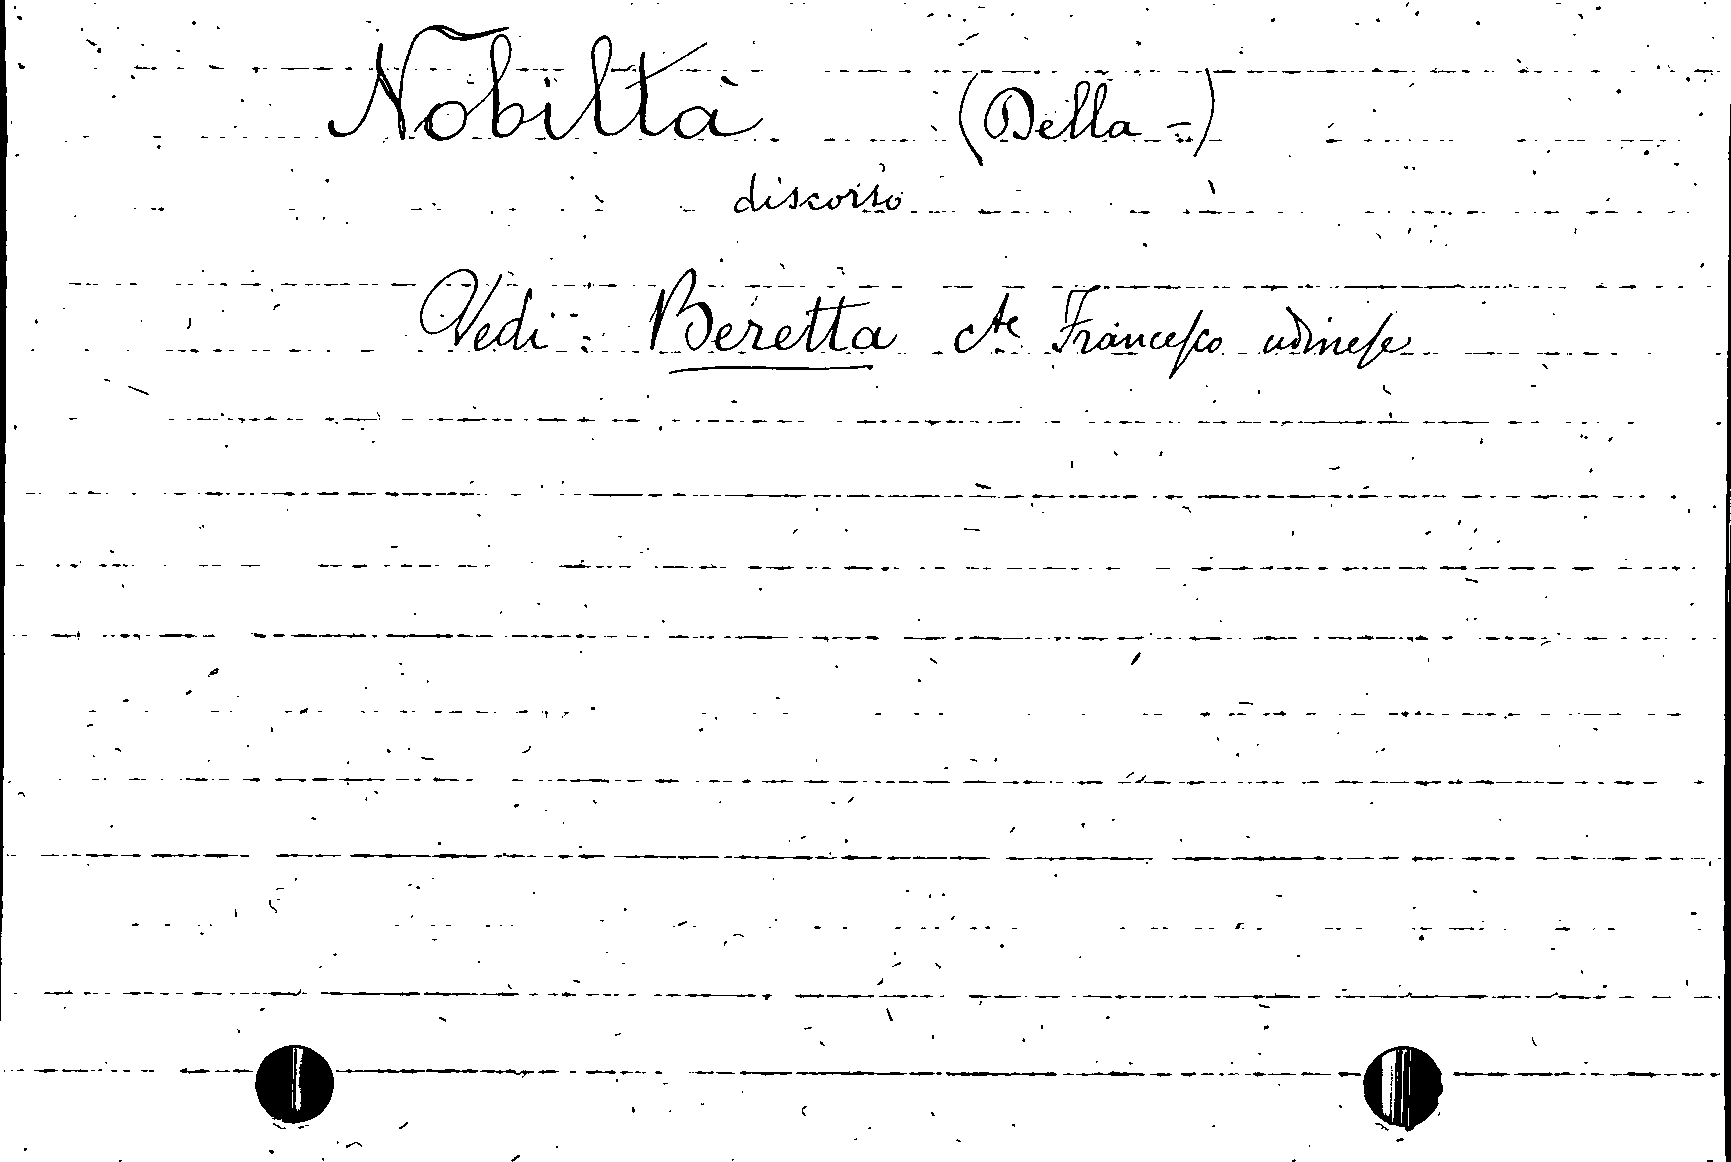 Nobiltà (Della =)
discorso
Vedi: Beretta cte Francesco udinese